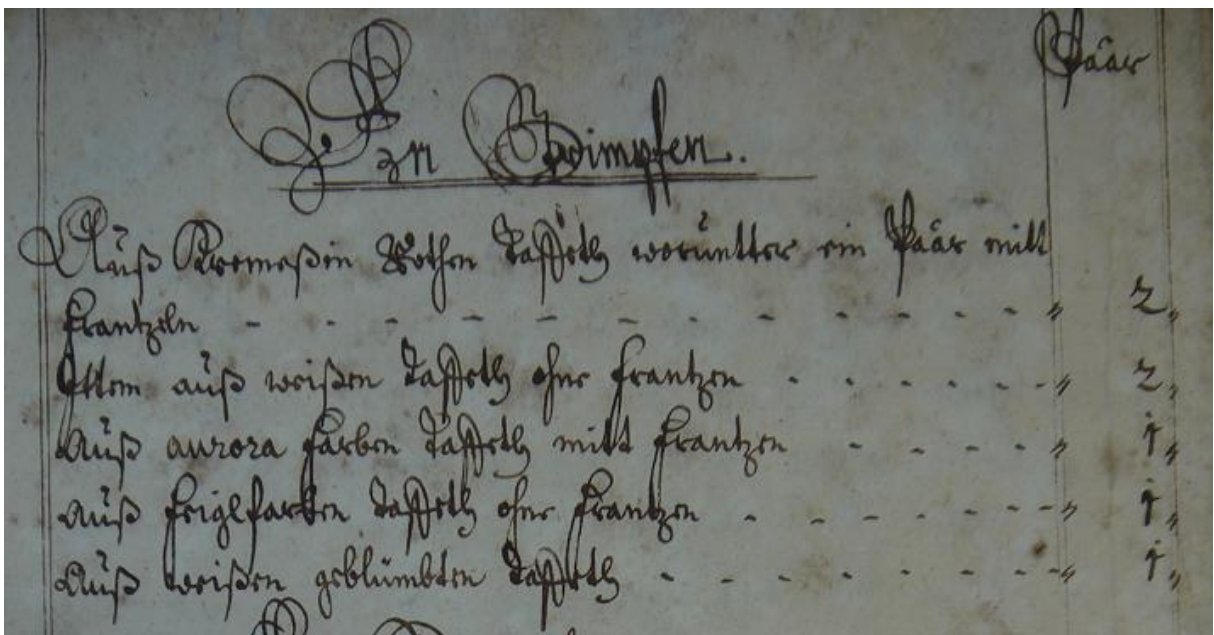 Päär
An Gwimpfen.
Auß Kremeßin Rothen Taffeth woruntter ein Päär mitt
Frantzeln - - - - - - - - - - - „ 2„
Ittem auß weißen Taffeth ohne Frantzen - - - - - - „ 2„
Auß aurora farben Taffeth mitt Frantzen - - - - „ 1„
Auß feiglfarben Taffeth ohne Frantzen - - - - - - „ 1„
Auß weißen geblümbten Taffeth - - - - - - - „ 1„